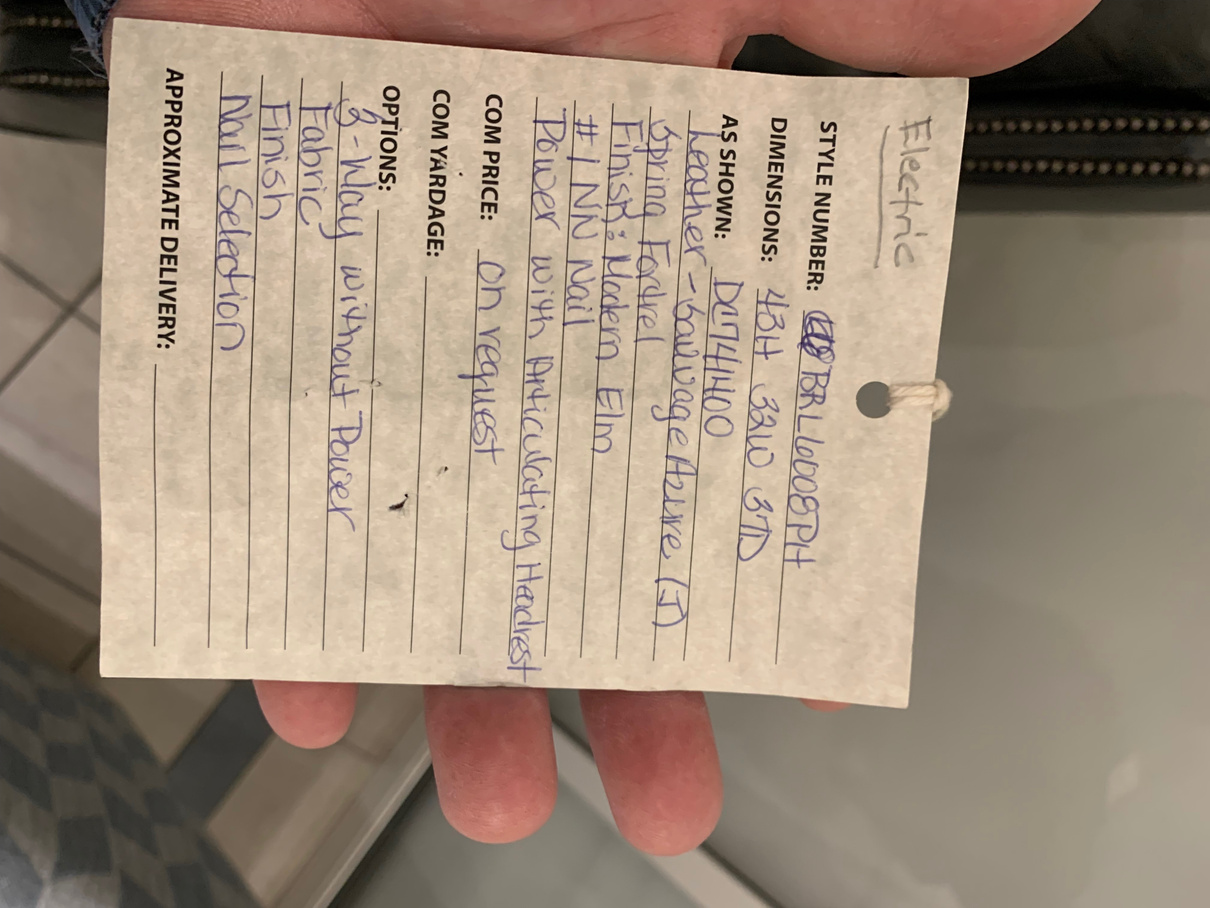 Electric
STYLE NUMBER: BRL6008PH
DIMENSIONS: 43H 32W 37D
AS SHOWN: DC741400
Leather - Salvage Azure (J)
Spring Fordrel
Finish: Modern Elm
#1 NN Nail
Power with Articulating Headrest
COM PRICE: on request
COM YARDAGE:
OPTIONS:
2-Way without Power
Fabric
Finish
Nail Selection
APPROXIMATE DELIVERY: